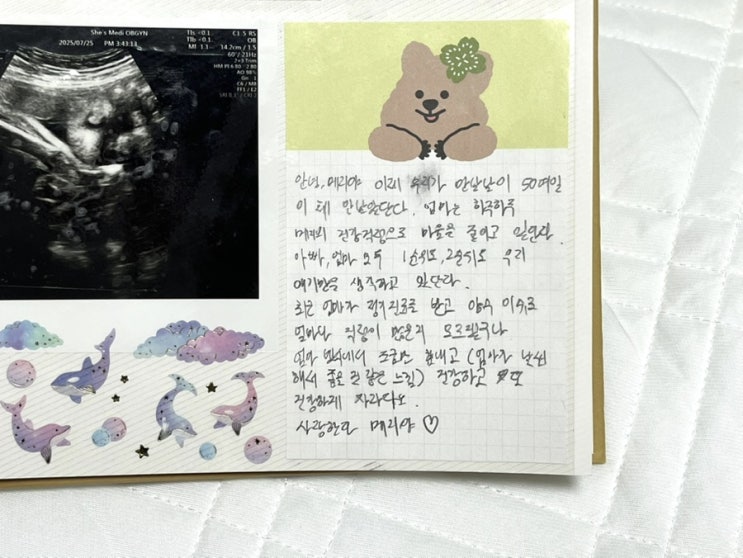 She's Medi OBGYN
2025/07/25 PM 3:43:13
TIs <0.1 C1 5 RS
TIb <0.1 OB
MI 1.1 14.2cm / 1.5
60˚/ 21Hz
2+3 Trim
HM PI 6.80 - 2.80
AO 98%
Gn 1
C6 / M8
FF1 / E2
SRI II 1 / CRI 2
안녕, 메리야 이제 우리가 만날날이 50여일
이 채 안남았단다. 엄마는 하루하루
메리의 건강걱정으로 마음을 졸이고 있단다.
아빠, 엄마 모두 1순위도, 2순위도 우리
애기만을 생각하고 있단다.
최근 엄마가 정기진료를 받고 양수 이슈로
얼마나 걱정이 많은지 모르겠구나
엄마 뱃속에서 조금만 힘내고 (엄마가
해서 좁을 것 같은 느낌) 건강하고 또
건강하게 자라다오.
사랑한다 메리야 ♡